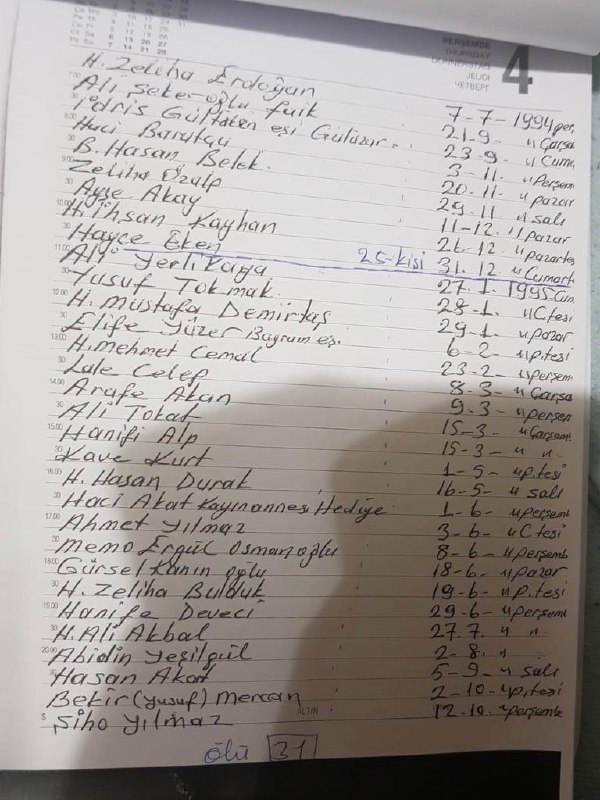 PERŞEMBE
THURSDAY
DONNERSTAG
JEUDI
ЧЕТВЕРГ
4
H. Zeliha Erdoğan 7-7-1994 per.
Ali Şekeroğlu faik 21.9. " Çarşa
İdris Gültaken eşi Gülüzar. 23-9- " Cuma
Haci Barutçu 3-11- " Perşem
B. Hasan Belek. 20-11- " pazar
Zeliha Özalp 29-11- " salı
Ayşe Akay 11-12. " pazar
H. İhsan Kayhan 26.12. " pazartes
Hayce Eken 25 kişi 31.12 " Cumart
Ali Yerlikaya 27.1. 1995 Cum
Yusuf Tokmak. 28-1. " Ctesi
H. Mustafa Demirtaş 29-1. " pazar
Elife Yüzer Bayram eş. 6-2- " p.tesi
H. Mehmet Cemal 23-2- " perşem
Lale Celep 8-3- " Çarşa
Arafe Akan 9.3- " perşen
Ali Tokat 15-3- " Çarşamb
Hanifi Alp 15-3- " "
Kave Kurt 1-5- " p.tesi
H. Hasan Durak 16-5- " salı
Haci Akat Kayınannesi Hediye 1-6- " perşemb
Ahmet Yılmaz 3-6- " Ctesi
Memo Ergül Osmanoğlu 8-6- " perşemb
Gürsel Kanın oğlu 18-6- " pazar
H. Zeliha Bulduk 19-6- " p.tesi
Hanife Deveci 29-6- " perşemb
H. Ali Akbal 27.7. " "
Abidin Yeşilgül 2-8. "
Hasan Akat 5-9- " salı
Bekir (Yusuf) Mercan 2-10- " p.tesi
Şiho Yılmaz 12-10. " perşembe
ALTIN
Ölü 31